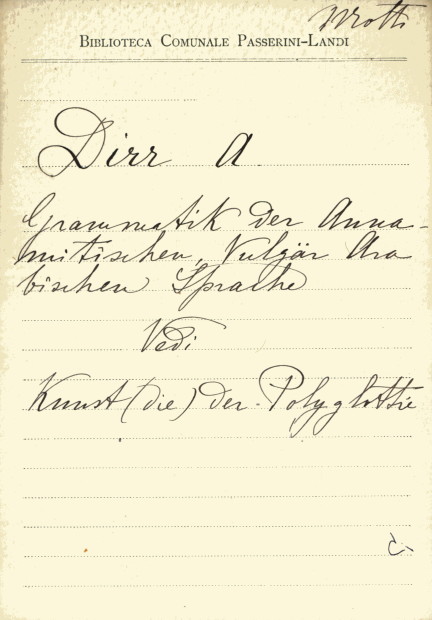 Mrotti
BIBLIOTECA COMUNALE PASSERINI-LANDI
Dirr A.
Grammatik der Anna-
mitischen, Vulgär Ara
bischen Sprache
Vedi
Kunst (die) der Polyglottie